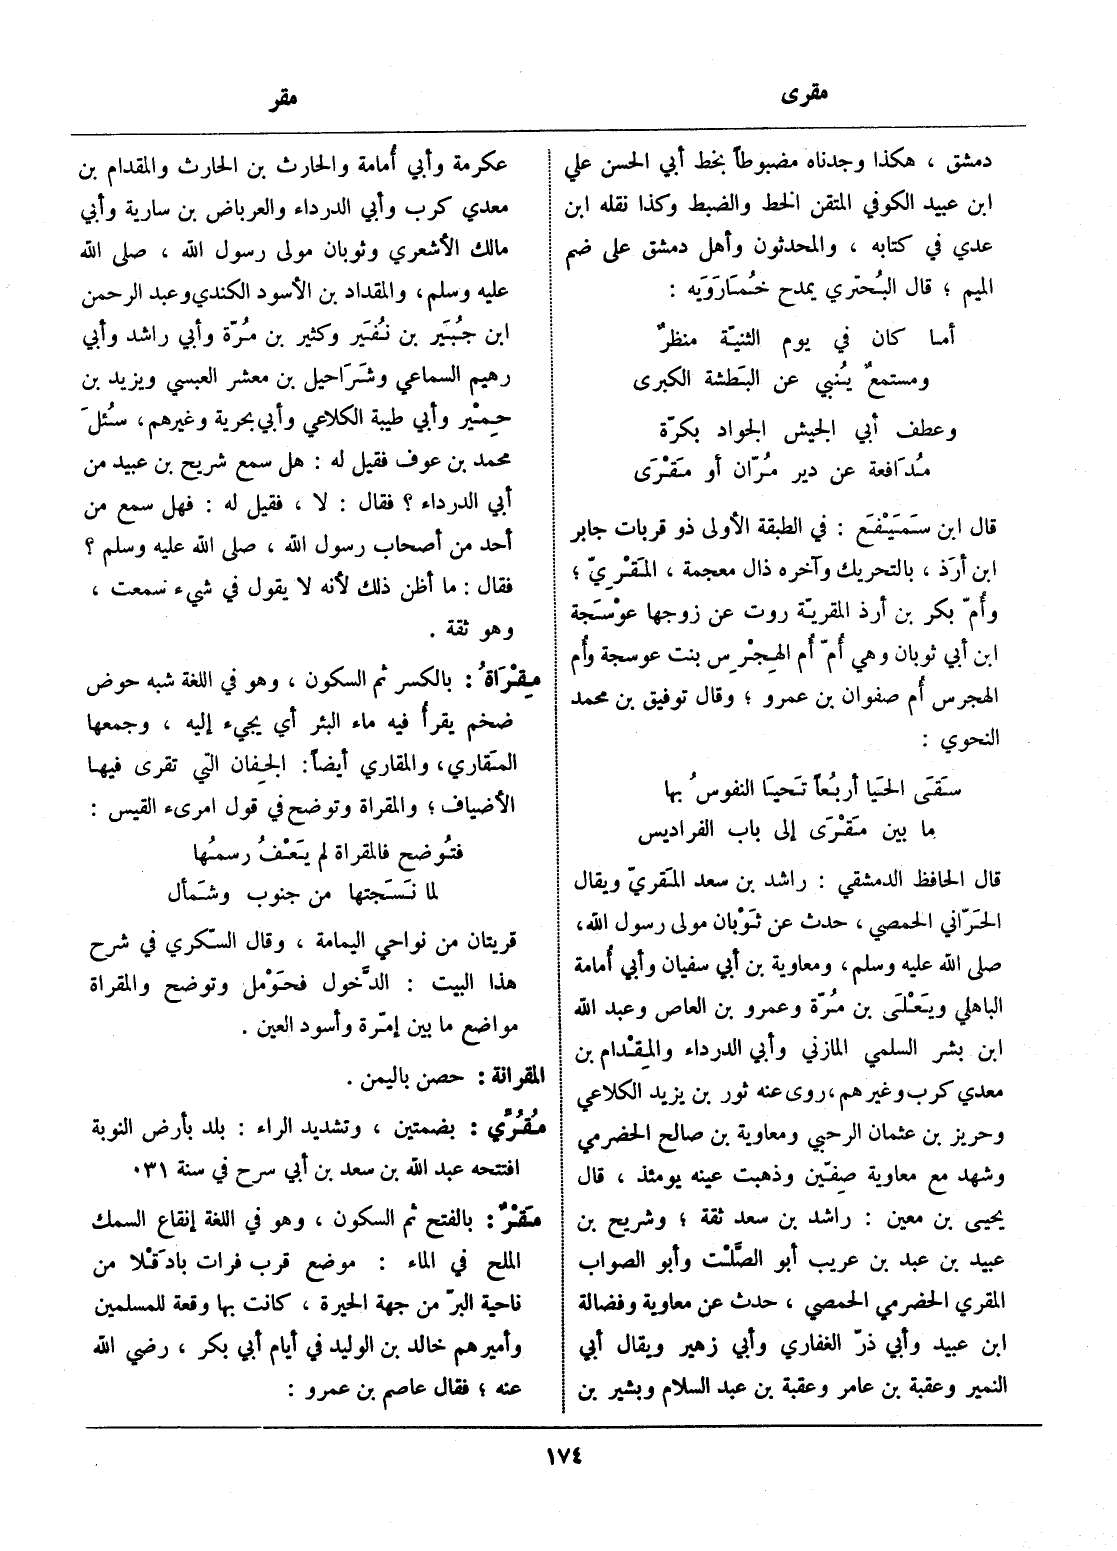 مقرى
مقر
دمشق ، هكذا وجدناه مضبوطاً بخط أبي الحسن علي
ابن عبيد الكوفي المتقن الخط والضبط وكذا نقله ابن
عدي في كتابه ، والمحدثون وأهل دمشق على ضم
الميم ؛ قال البُحتري يمدح خُمَارَوَيه :
أما كان في يوم الثنيّة منظرٌ
ومستمعٌ يُنبي عن البَطشة الكبرى
وعطف أبي الجيش الجواد بكرّة
مُدَافعة عن دير مُرّان أو مَقْرَى
قال ابن سَمَيْفَع : في الطبقة الأولى ذو قربات جابر
ابن أرَذ ، بالتحريك وآخره ذال معجمة ، المَقْرِيّ ؛
وأُمّ بكر بن أرذ المقريّة روت عن زوجها عوْسَجة
ابن أبي ثوبان وهي أُمّ أُم الهِجْرِس بنت عوسجة وأُم
الهجرس أُم صفوان بن عمرو ؛ وقال توفيق بن محمد
النحوي :
سَقَى الحَيا أربُعاً تَحيَا النفوسُ بها
ما بين مَقْرَى إلى باب الفراديس
قال الحافظ الدمشقي : راشد بن سعد المَقريّ ويقال
الحَرّاني الحمصي ، حدث عن ثَوْبان مولى رسول الله،
صلى الله عليه وسلم، ومعاوية بن أبي سفيان وأبي أُمامة
الباهلي ويَعْلَى بن مُرّة وعمرو بن العاص وعبد الله
ابن بشر السلمي المازني وأبي الدرداء والمِقْدام بن
معدي كرب وغيرهم، روى عنه ثور بن يزيد الكلاعي
وحريز بن عثمان الرحبي ومعاوية بن صالح الحضرمي
وشهد مع معاوية صِفّين وذهبت عينه يومئذ ، قال
يحيى بن معين : راشد بن سعد ثقة ؛ وشريح بن
عبيد بن عبد بن عريب أبو الصَّلْت وأبو الصواب
المقري الحضرمي الحمصي ، حدث عن معاوية وفضالة
ابن عبيد وأبي ذرّ الغفاري وأبي زهير ويقال أبي
النمير وعقبة بن عامر وعقبة بن عبد السلام وبشير بن
عكرمة وأبي أُمامة والحارث بن الحارث والمقدام بن
معدي كرب وأبي الدرداء والعرباض بن سارية وأبي
مالك الأشعري وثوبان مولى رسول الله ، صلى الله
عليه وسلم، والمقداد بن الأسود الكندي وعبد الرحمن
ابن جُبَير بن نُفَير وكثير بن مُرّة وأبي راشد وأبي
رهيم السماعي وشَرَاحيل بن معشر العبسي ويزيد بن
حِمْير وأبي طيبة الكلاعي وأبي بحرية وغيرهم، سُئلَ
محمد بن عوف فقيل له : هل سمع شريح بن عبيد من
أبي الدرداء ؟ فقال : لا ، فقيل له : فهل سمع من
أحد من أصحاب رسول الله ، صلى الله عليه وسلم ؟
فقال : ما أظن ذلك لأنه لا يقول في شيء سمعت ،
وهو ثقة .
مِقْرَاةُ : بالكسر ثم السكون ، وهو في اللغة شبه حوض
ضخم يقرأُ فيه ماء البئر أي يجيء إليه ، وجمعها
المَقاري، والمقاري أيضاً: الجِفان التي تقرى فيها
الأضياف ؛ والمقراة وتوضح في قول امرىء القيس :
فتُوضح فالمقراة لم يَعْفُ رسمُها
لما نَسَجتها من جنوب وشَمأل
قريتان من نواحي اليمامة ، وقال السّكري في شرح
هذا البيت : الدَّخول فحَوْمل وتوضح والمقراة
مواضع ما بين إمّرة وأسود العين .
المقرانة : حصن باليمن .
مُقُرَّي : بضمتين ، وتشديد الراء : بلد بأرض النوبة
افتتحه عبد الله بن سعد بن أبي سرح في سنة ٣١٠
مَقْرٌ : بالفتح ثم السكون ، وهو في اللغة إنقاع السمك
الملح في الماء : موضع قرب فرات بادَقْلا من
ناحية البرّ من جهة الحيرة ، كانت بها وقعة للمسلمين
وأميرهم خالد بن الوليد في أيام أبي بكر ، رضي الله
عنه ؛ فقال عاصم بن عمرو :
١٧٤